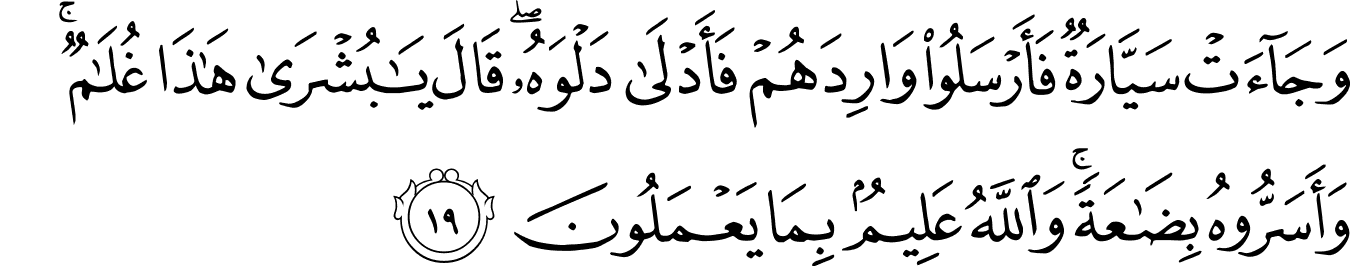 وَجَآءَتْ سَيَّارَةٌ فَأَرْسَلُوا۟ وَارِدَهُمْ فَأَدْلَىٰ دَلْوَهُۥ ۖ قَالَ يَـٰبُشْرَىٰ هَـٰذَا غُلَـٰمٌ ۚ
وَأَسَرُّوهُ بِضَـٰعَةً ۚ وَٱللَّهُ عَلِيمٌۢ بِمَا يَعْمَلُونَ ١٩